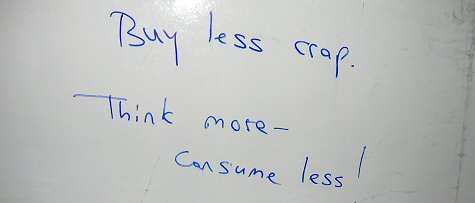 Buy less crap.
Think more–
Consume less!